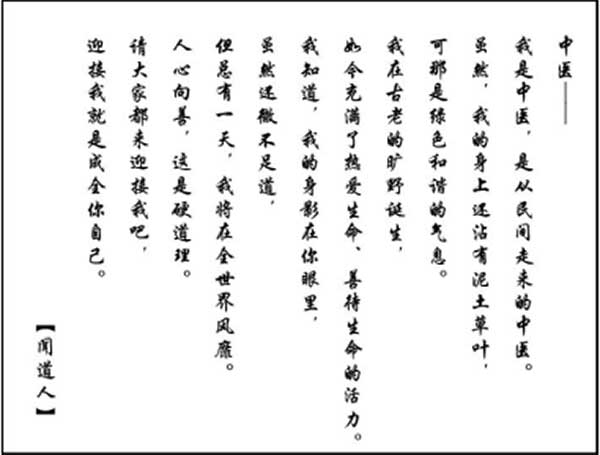 中医——
我是中医，是从民间走来的中医。
虽然，我的身上还沾有泥土草叶，
可那是绿色和谐的气息。
我在古老的旷野诞生，
如今充满了热爱生命、善待生命的活力。
我知道，我的身影在你眼里，
虽然还微不足道，
但总有一天，我将在全世界风靡。
人心向善，这是硬道理。
请大家都来迎接我吧，
迎接我就是成全你自己。
【闻道人】